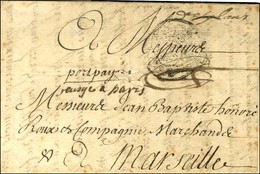 A Messieurs
port payé
jusqu'a paris
Messieurs Jean Baptiste honoré
Roux & Compagnie Marchands
A Marseille